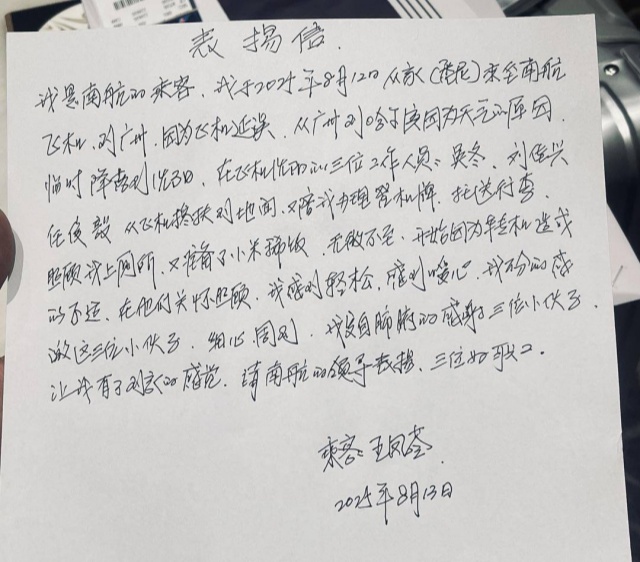 表扬信.
我是南航的乘客. 我于2025年8月12日从家(悉尼)乘坐南航
飞机. 到广州. 因为飞机延误. 从广州到哈尔滨因为天气的原因.
临时降落到沈阳. 在飞机沈阳的三位工作人员: 吴冬. 刘俊兴
任俊毅 从飞机搀扶到地面. 又陪我办理登机牌. 托运行李.
照顾我上厕所. 又准备了小米稀饭. 无微不至. 开始因为转机造成
的不适. 在他们关怀照顾. 我感到轻松. 感到暖心. 我十分的感
激这三位小伙子. 细心周到. 我发自肺腑的感谢三位小伙子.
让我有了到家的感觉. 请南航的领导表扬. 三位好职工.
乘客: 王凤苓.
2025年8月13日